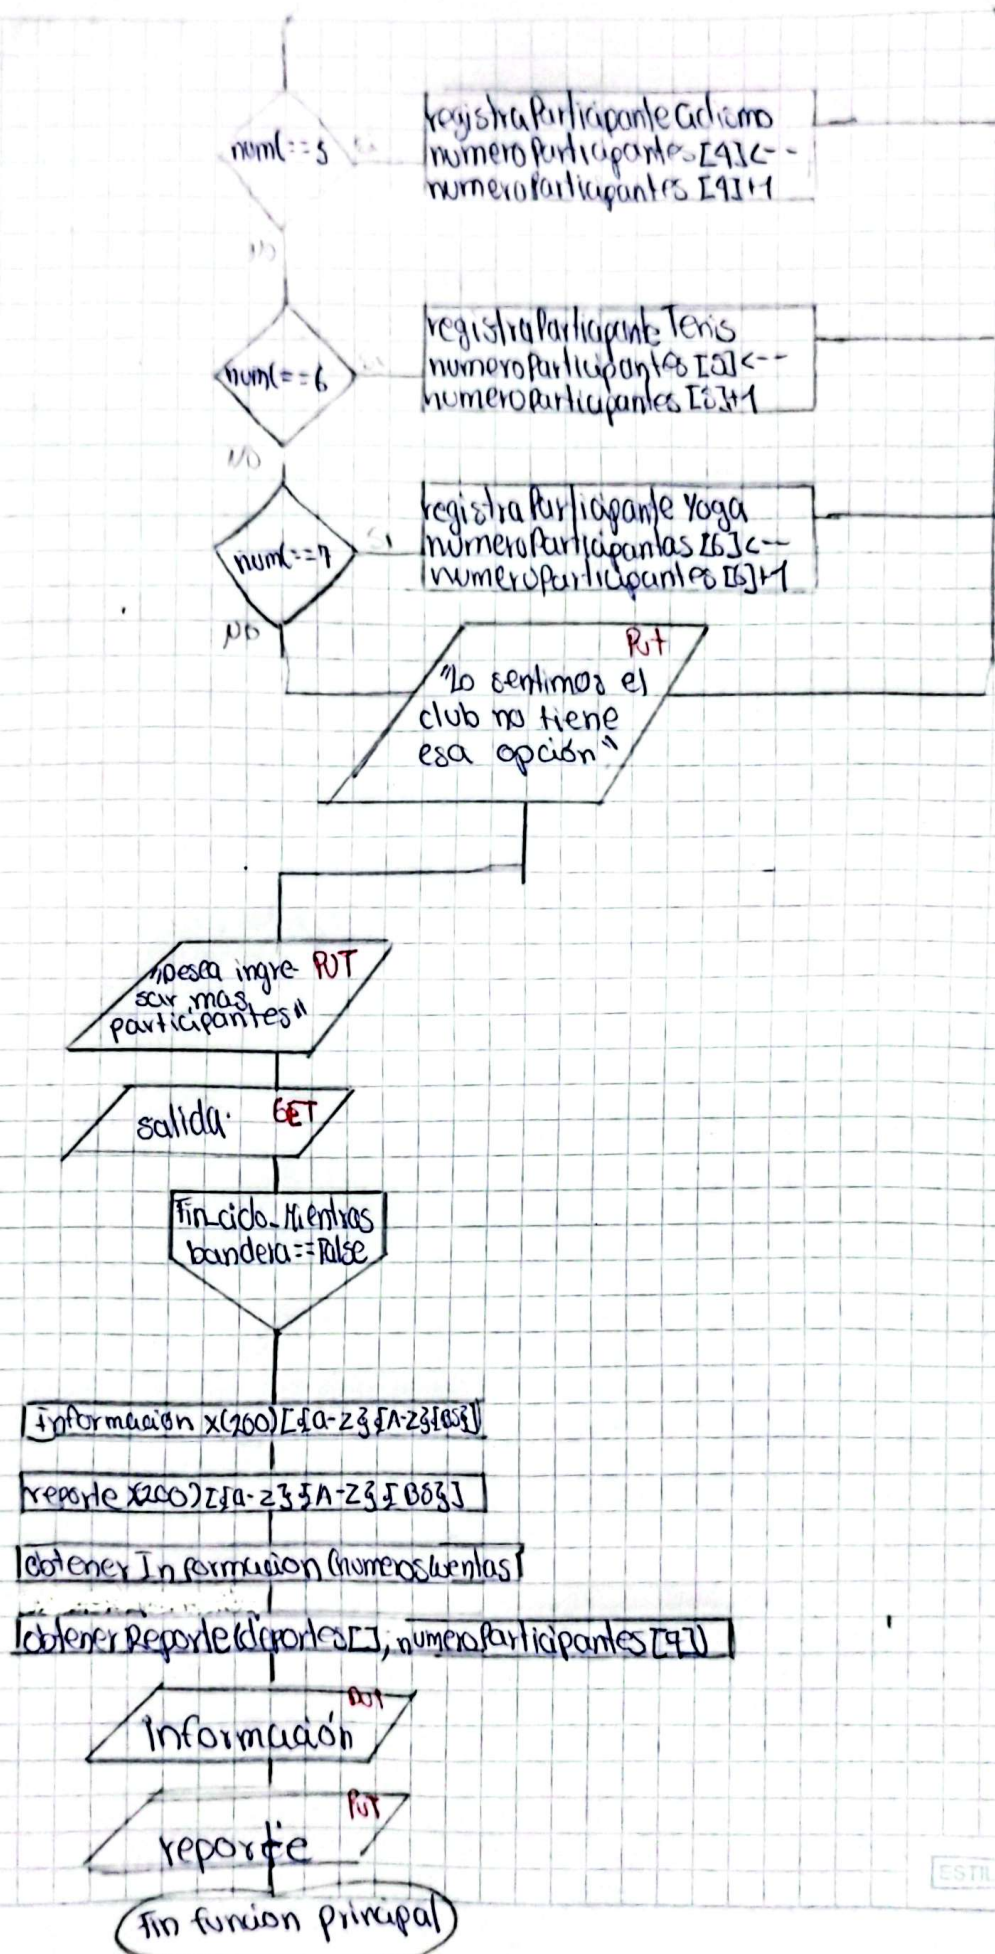 num(==5
Si
registraParticipanteCiclismo
numeroParticipantes[4]<--
numeroParticipantes[4]+1
NO
num(==6
Si
registraParticipante Tenis
numeroParticipantes[5]<--
numeroParticipantes[5]+1
NO
num(==7
Si
registraParticipante Yoga
numeroParticipantas[6]<--
numeroParticipantes[6]+1
NO
PUt
"Lo sentimos el
club no tiene
esa opción"
"Desea ingre- PUT
sar mas
participantes"
salida. GET
Fin_ciclo_Mientras
bandera==False
Información X(200)[{a-z}{A-Z}{BS}]
reporte X(200)[{a-z}{A-Z}{BS}]
obtenerInformacion(numerosCuentas)
obtenerReporte(deportes[],numeroParticipantes[9])
PUT
Información
PUT
reporte
Fin funcion principal